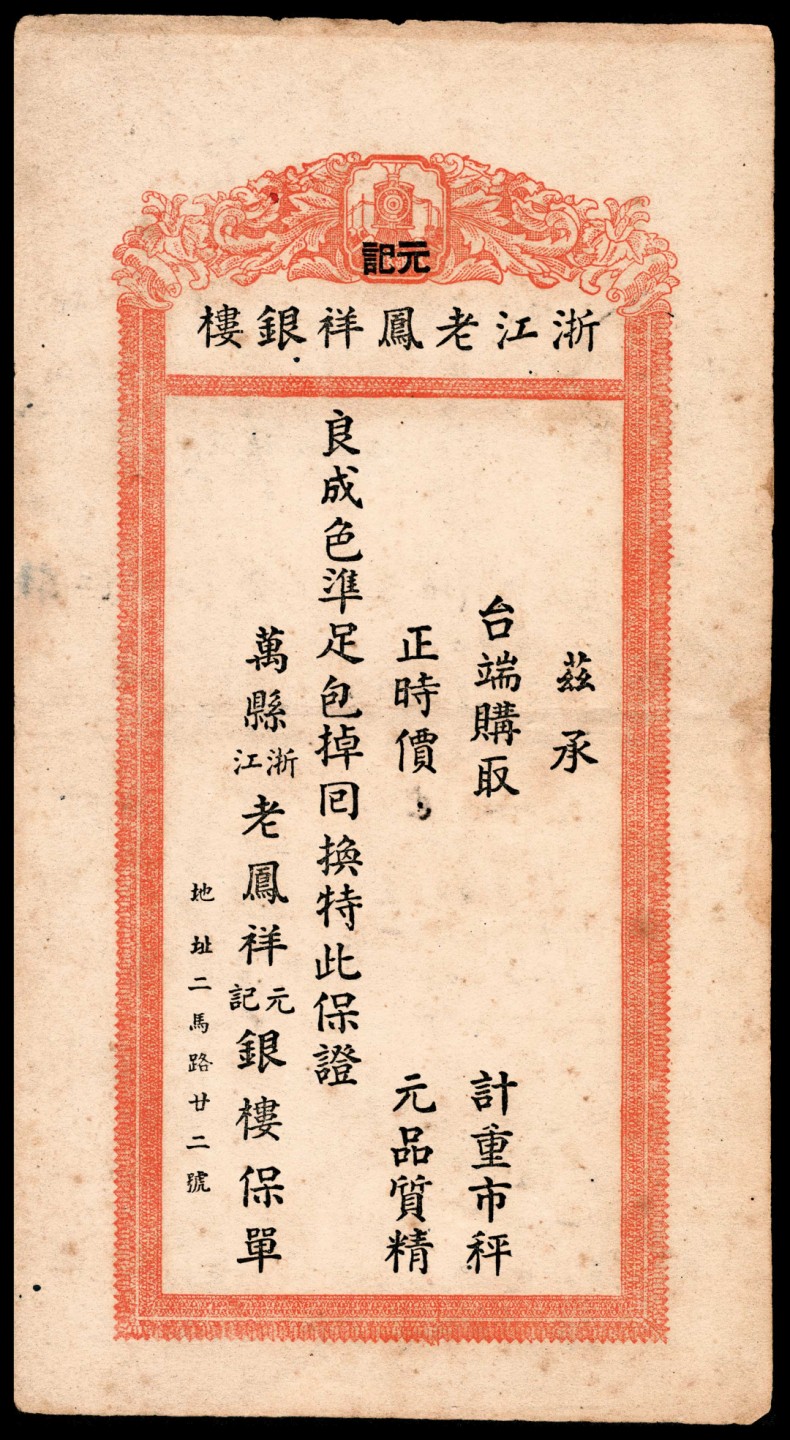 元記
浙江老鳳祥銀樓
茲承
台端購取　計重市秤
正時價　元品質精
良成色準足包掉回換特此保證
萬縣浙江老鳳祥元記銀樓保單
地址二馬路廿二號